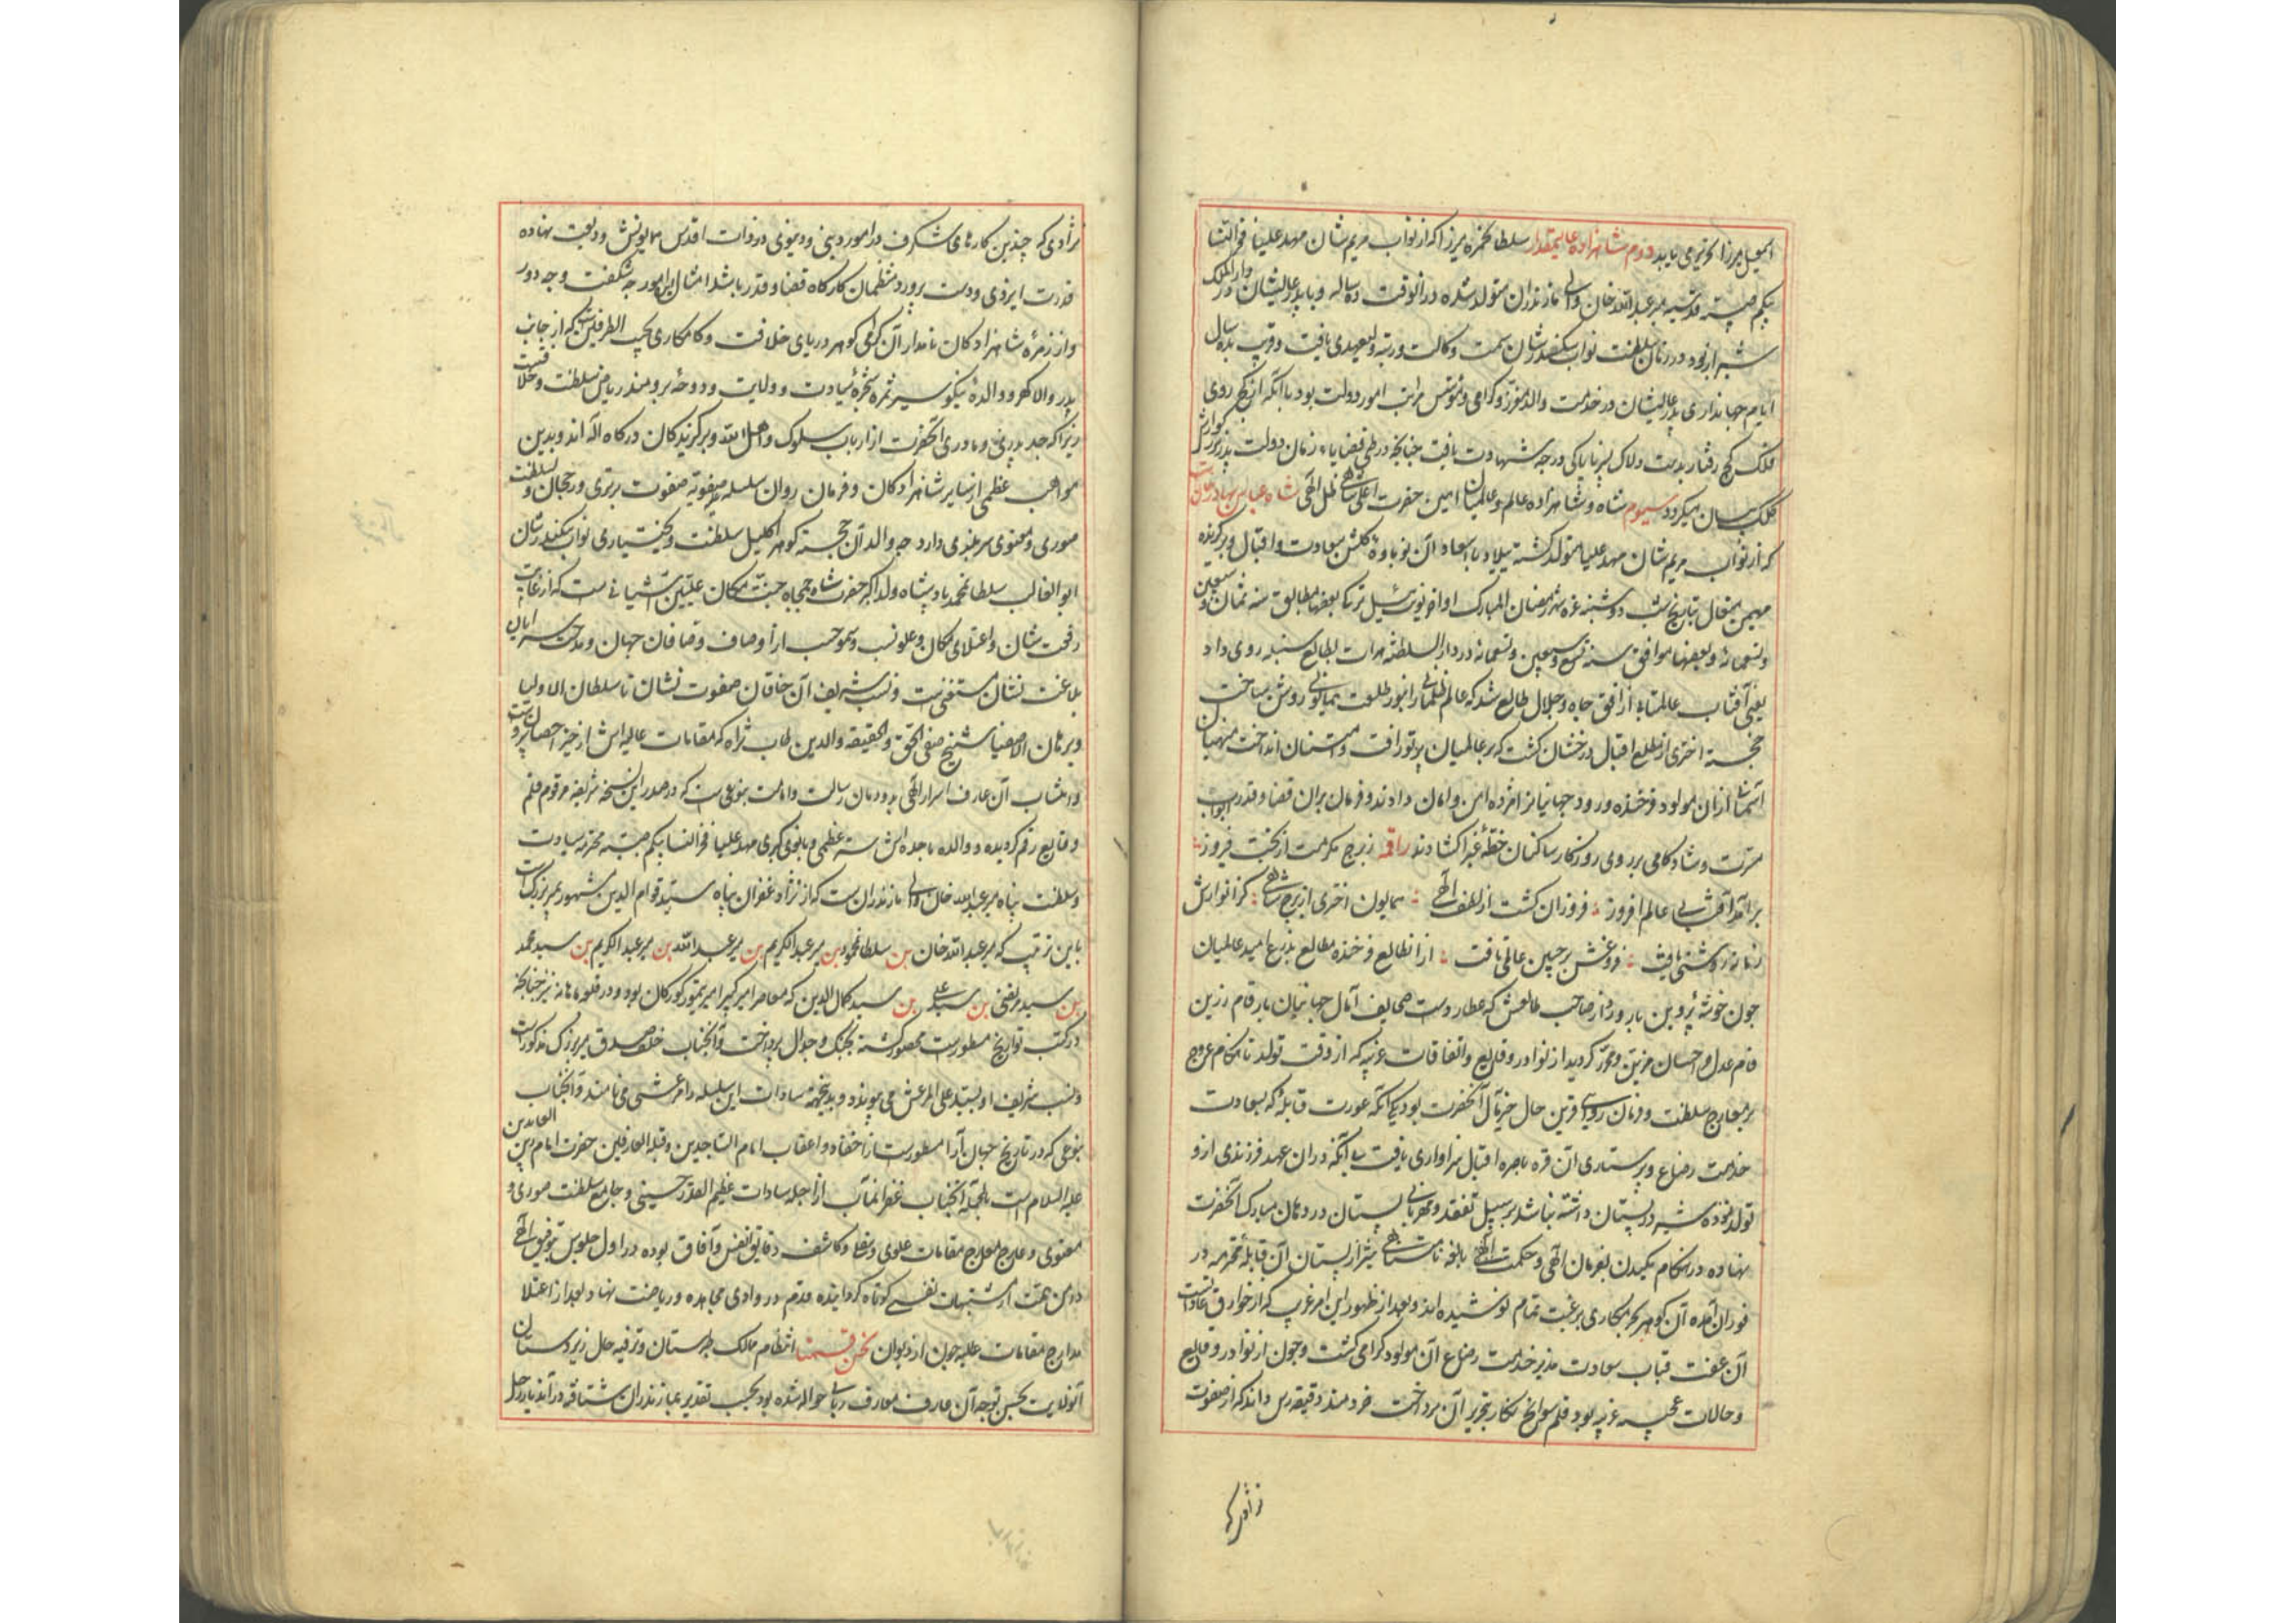 اسمعیل میرزا تحریر می یابد دوم شاهزاده عالیمقدار سلطان حمزه میرزا که از نواب مریم شان مهد علیا فخر النسا
بیگم صبیه قدسیه میر عبد الله خان والی مازندران متولد شده در انوقت ده ساله و با پدر عالیشان در دار الملک
شیراز بود در زمان سلطنت نواب سکندر شان سمت وکالت و رتبه ولیعهدی یافت و قریب بده سال
ایام جهانداری پدر عالیشان در خدمت والد معزز و گرامی و مؤسس مراتب امور دولت بود با آنکه از کج روی
فلک کج رفتار بدست دلاک پسر ناپاکی درجه شهادت یافت چنانچه در طی قضایاء زمان دولت پدر بزرگوارش
کلک بیان میگردد سیوم شاه و شاهزاده عالم و عالمیان اعنی حضرت اعلی شاهی ظل الهی شاه عباس بهادر خان است
که از نواب مریم شان مهد علیا متولد گشته میلاد با اسعاد آن نوباوه گلشن سعادت و اقبال و برگزیده
مهیمن متعال بتاریخ شب دوشنبه غره شهر رمضان المبارک اواخر یونت ئیل ترک بعضها مطابق سنه ثمان و سبعین
و تسعمائه و بعضها موافق سنه تسع و سبعین و تسعمائه در دار السلطنه هرات بطالع سنبله روی داد
یعنی آفتاب عالمتابی از افق جاه و جلال طالع شد که عالم ظلمانی را بنور طلعت همایونی روشن ساخت
خجسته اختری از مطلع اقبال درخشان گشت که بر عالمیان پرتو رافت و امتنان انداخت منهیان
آسمانی از آن مولود فرخنده ورود جهانیانرا مژده امن و امان دادند و فرمان بران قضا و قدر ابواب
مسرت و شادکامی بر روی روزگار ساکنان خطه غبرا گشادند راقمه ز برج مکرمت از بخت فیروز
برآمد آفتابی عالم افروز فروزان گشت از لطف الهی همایون اختری از برج شاهی کز انوارش
زمانه روشنی یافت فروغش بر جبین عالمی تافت از انطالع فرخنده مطالع مزرع امید عالمیان
چون خوشه پروین بارور و از صاحب طالعش که عطارد است صحایف آمال جهانیان بارقام زرین
قام عدل و احسان مزین و محرر گردید از نوادر وقایع و اتفاقات غریبه که از وقت تولد تا هنگام عروج
بر معارج سلطنت و فرمان روایی قرین حال خیر مآل آنحضرت بود یکی آنکه عورت قابله که بسعادت
خدمت رضاع و پرستاری آن قره باصره اقبال سزاواری یافت بی آنکه در ان عهد فرزندی ازو
تولد نموده شیر در پستان داشته باشد بر سبیل تفقد و مهربانی پستان در دهان مبارک آنحضرت
نهاده در هنگام مکیدن بفرمان الهی و حکمت بالغه نامتناهی شیر از پستان آن قابله محترمه در
فوران آمده آن گوهر بحر بختیاری برغبت تمام نوشیده اند و بعد از ظهور این امر غریب که از خوارق عاداتست
آن عفت قباب سعادت پذیر خدمت رضاع آن مولود گرامی گشت و چون از نوادر وقایع
و حالات عجیبه غریبه بود قلم سوانح نگار بتحریر آن پرداخت خردمند دقیقه رس داند که از صفوت
نژادی که
نژادی که چندین کارهای شگرف در امور دینی و دنیوی در ذات اقدس همایونش ودیعت نهاده
قدرت ایزدی و دست پرورد منتظمان کارگاه قضا و قدر باشد امثال این امور چه شگفت و چه دور
و از زمره شاهزادگان نامدار آن گرامی گوهر دریای خلافت و کامکاری نجیب الطرفین است که از جانب
پدر والا گهر و والده نیکو سیر ثمره شجره سیادت و ولایت و دوحه برومند ریاض سلطنت و خلافت
زیرا که جد پدری و مادری آنحضرت از ارباب سلوک و اهل الله و برگزیدگان درگاه اله اند و بدین
مواهب عظمی از سایر شاهزادگان و فرمان روان سلسله صفویه صفوت برتری و رجحان و سلطنت
صوری و معنوی سربلندی دارد چه والد آن خجسته گوهر اکلیل سلطنت و بختیاری نواب سکندر شان
ابو الغالب سلطان محمد پادشاه ولد اکبر حضرت شاه جمجاه جنت مکان علیین آشیانی است که از غایت
رفعت شان و اعتلای مکان و علو نسب و سمو حسب از اوصاف وصافان جهان و مدحت سرایان
بلاغت نشان مستغنی است و نسب شریف آن خاقان صفوت نشان تا سلطان الاولیا
و برهان الاصفیا شیخ صفی الحق و الحقیقه والدین طاب ثراه که مقامات عالیه اش از حیز احصا بیرونست
و انتساب آن عارف اسرار الهی بدودمان رسالت و امامت بنوعی است که در صدر این نسخه شریفه مرقوم قلم
وقایع رقم گردیده و والده ماجده اش ستر عظمی و بانوی کبری مهد علیا فخر النسا بیگم صبیه محترمه سیادت
و سلطنت پناه میر عبد الله خان والی مازندران است که از نژاد غفران پناه سید قوام الدین مشهور بمیر بزرگ است
باین ترتیب که میر عبد الله خان بن سلطان محمود بن میر عبد الکریم بن میر عبد الله بن میر عبد الکریم بن سید محمد
بن سید مرتضی بن سید علی بن سید کمال الدین که معاصر امیر کبیر امیر تیمور گورکان بود و در قلعه ماهانه سر چنانچه
در کتب تواریخ مسطور است محصور گشته بجنگ و جدال پرداخت و آنجناب خلف صدق میر بزرگ مذکور است
و نسب شریف او بسید علی المرعش می پیوندد و بدینجهة سادات این سلسله را مرعشی می نامند و آنجناب
بنوعی که در تاریخ جهان آرا مسطور است از احفاد و اعقاب امام الساجدین و قبله العارفین حضرت امام زین العابدین
علیه السلام است بالجمله آنجناب غفران مآب از اجله سادات عظیم القدر حسینی و جامع سلطنت صوری و
معنوی و عارج معارج مقامات علوی و سفلی و کاشف دقایق انفس و آفاق بوده در اول جلوس بتوفیق الهی
دامن همت از مشتهیات نفسی کوتاه گردانیده قدم در وادی مجاهده و ریاضت نهاد بعد از اعتلا
مدارج مقامات علیه چون از دیوان نحن قسمنا انتظام ممالک طبرستان و ترفیه حال زیردستان
آنولایت بحسن توجه آن عارف معارف ربانی حواله شده بود بحسب تقدیر بمازندران شتافته در آندیار رحل